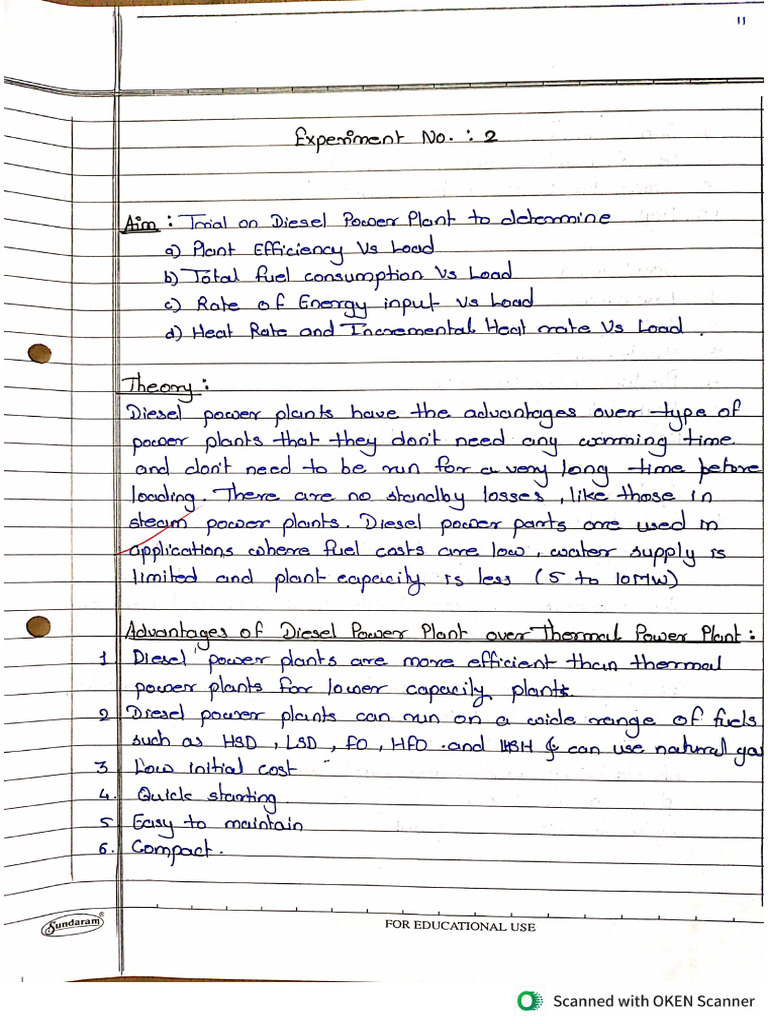 11
Experiment No. : 2
Aim : Trial on Diesel Power Plant to determine
a) Plant Efficiency Vs Load
b) Total fuel consumption Vs Load
c) Rate of Energy input Vs Load
d) Heat Rate and Incremental Heat rate Vs Load .
Theory :
Diesel power plants have the advantages over type of
power plants that they don't need any warming time
and don't need to be run for a very long time before
loading. There are no standby losses, like those in
steam power plants. Diesel power parts are used in
applications where fuel costs are low, water supply is
limited and plant capacity is less (5 to 10MW)
Advantages of Diesel Power Plant over Thermal Power Plant :
1. Diesel power plants are more efficient than thermal
power plants for lower capacity plants.
2 Diesel power plants can run on a wide range of fuels
such as HSD, LSD, FO, HFO and & can use natural gas
3 Low initial cost
4. Quick starting.
5 Easy to maintain
6. Compact.
Sundaram®
FOR EDUCATIONAL USE
Scanned with OKEN Scanner